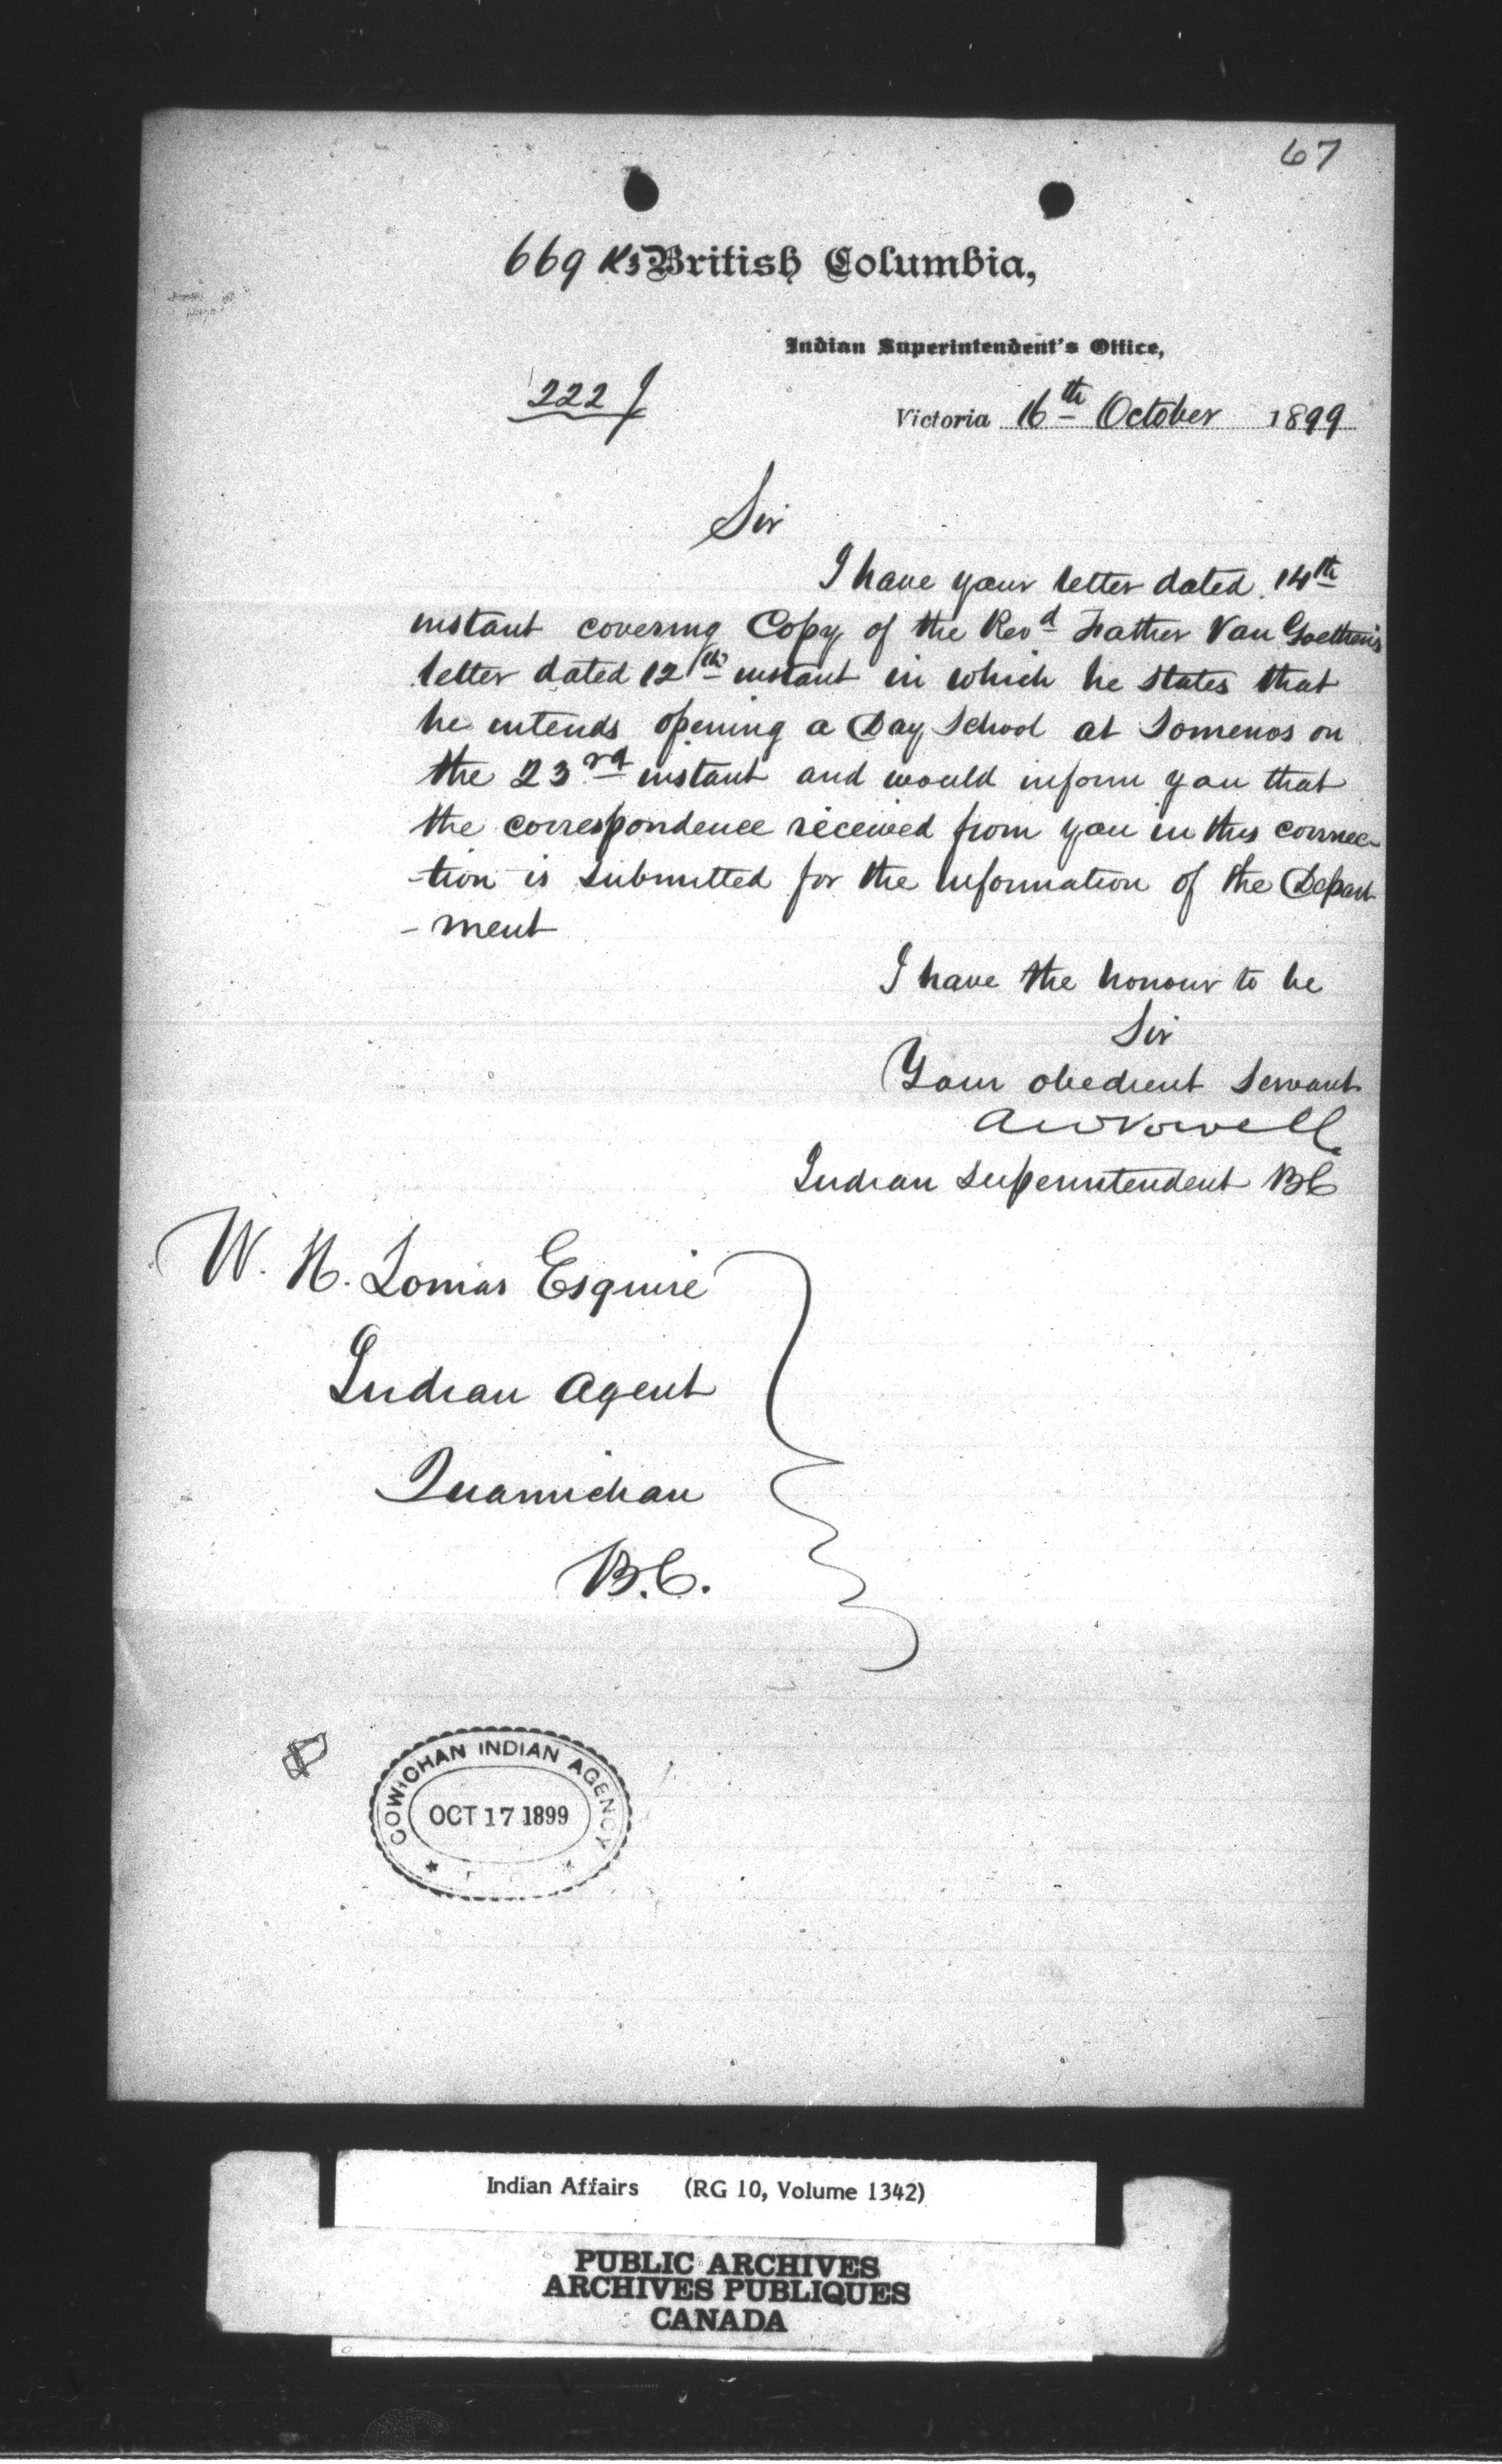 67
669 K3 British Columbia,
Indian Superintendent's Office,
222 J
Victoria 16th October 1899
Sir
I have your letter dated 14th
instant covering Copy of the Revd Father Van Goethem's
letter dated 12th instant in which he states that
he intends opening a Day School at Somenos on
the 23rd instant and would inform you that
the correspondence received from you in this connec-
-tion is submitted for the information of the Depart
-ment
I have the honour to be
Sir
Your obedient Servant
A W Vowell
Indian Superintendent BC
W. H. Lomas Esquire
Indian Agent
Quamichan
B.C.
COWICHAN INDIAN AGENCY
OCT 17 1899
Indian Affairs (RG 10, Volume 1342)
PUBLIC ARCHIVES
ARCHIVES PUBLIQUES
CANADA